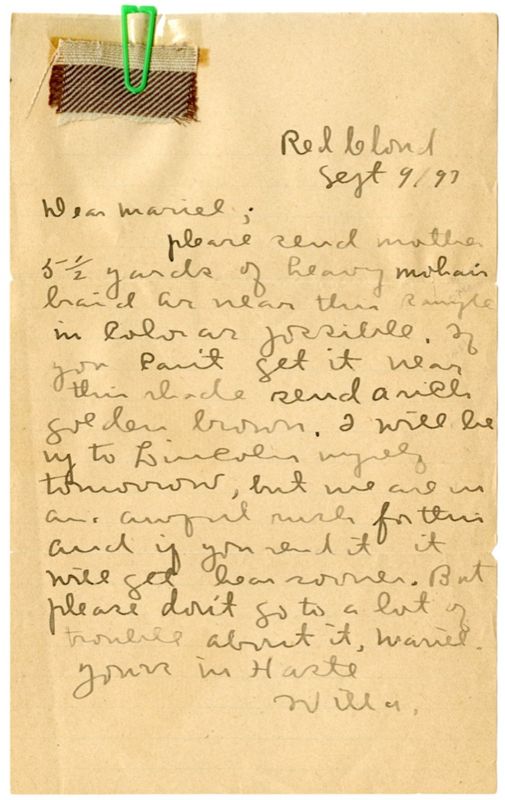 Red Cloud
Sept 9/97
Dear Mariel;
please send mother
5 1/2 yards of heavy mohair
braid as near this sample
in Color as possible. If
you Can't get it near
this shade send a rich
golden brown. I will be
up to Lincoln myself
tomorrow, but we are in
an awful rush for this
and if you send it it
will get hear sooner. But
please don't go to a lot of
trouble about it, Mariel.
yours in Haste
Willa.